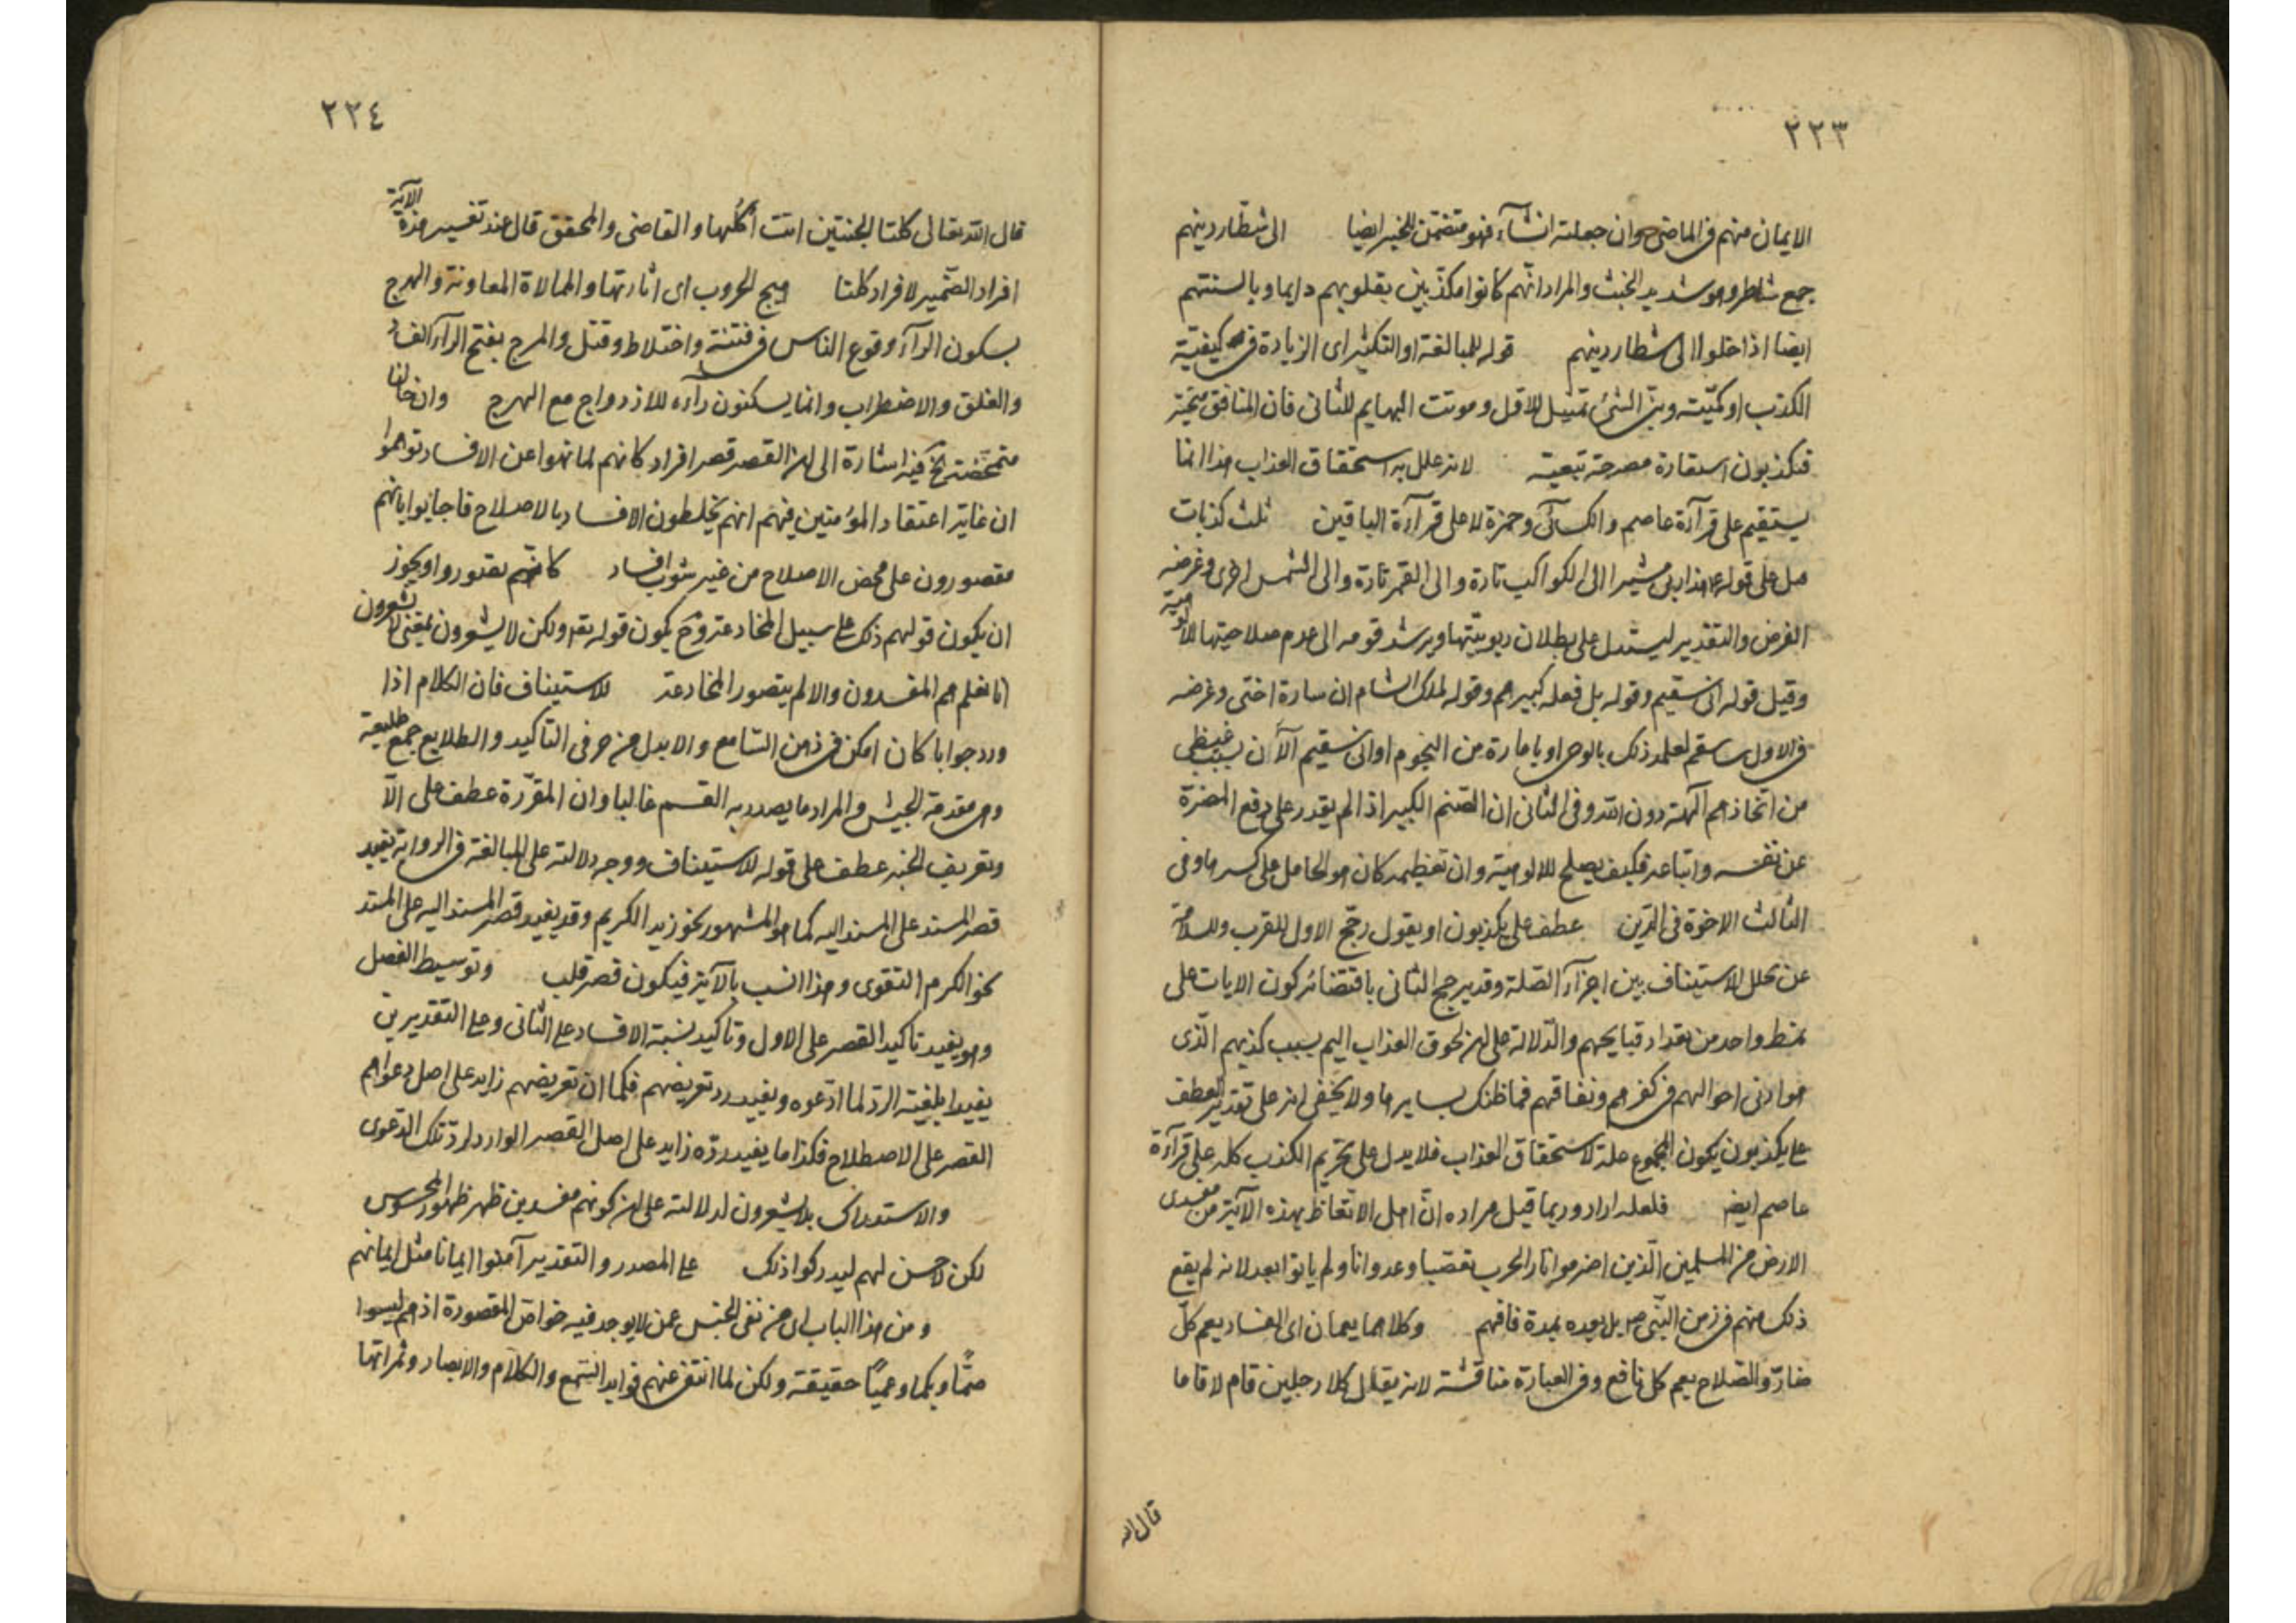 ٢٢٣
الايمان منهم فى الماضى وان جعلته انشآء فهو متضمن للخبر ايضا الى شطار دينهم
جمع شاطر وهو شديد الخبث والمراد انهم كانوا مكذبين بقلوبهم دايما وبالسنتهم
ايضا اذا خلوا الى شطار دينهم قوله للمبالغة او التكثير اى الزيادة فى كيفية
الكذب او كميته وبين الشئ تمثيل للاول وموتت البهايم للثانى فان المنافق متحير
فتكذبون استعارة مصرحة تبعية لانه علل به استحقاق العذاب هذا انما
يستقيم على قرآءة عاصم والكسائى وحمزة لا على قرآءة الباقين ثلث كذبات
حمل على قوله هذا ربى مشيرا الى الكواكب تارة والى القمر تارة والى الشمس اخرى وغرضه
الفرض والتقدير ليستدل على بطلان ربوبيتها ويرشد قومه الى عدم صلاحيتها للالوهية
وقيل قوله انى سقيم وقوله بل فعله كبيرهم وقوله لملك الشام ان سارة اختى وغرضه
فى الاول ساسقم لعلمه ذلك بالوحى او بامارة من النجوم او انى سقيم الآن بسبب غيظى
من اتخاذهم آلهة دون الله وفى الثانى ان الصنم الكبير اذا لم يقدر على دفع المضرة
عن نفسه واتباعه فكيف يصلح للالوهية وان تعظيمه كان هو الحامل على كسرها وفى
الثالث الاخوة فى الدين عطف على يكذبون او يقول رجح الاول للقرب وللسلامة
عن تخلل الاستيناف بين اجزآء الصلة وقد يرجح الثانى باقتضائه كون الايات على
نمط واحد من تعداد قبايحهم والدلالة على ان لحوق العذاب اليم بسبب كذبهم الذى
هو ادنى احوالهم فى كفرهم ونفاقهم فما ظنك بسايرها ولا يخفى انه على تقدير العطف
على يكذبون يكون المجموع علة لاستحقاق العذاب فلا يدل على تحريم الكذب كله على قرآءة
عاصم ايضا فلعله اراد وربما قيل مراده ان اهل الاتعاظ بهذه الآية من مفسدى
الارض من المسلمين الذين اضرموا نار الحرب تعصبا وعدوانا ولم ياتوا بعد لانه لم يقع
ذلك منهم فى زمن النبى ص بل بعده بمدة فافهم وكلاهما يعمان اى الفساد يعم كل
ضار والصلاح يعم كل نافع وفى العبارة مناقشة لانه يقال كلا رجلين قام لا قاما
قال الله
٢٢٤
قال الله تعالى كلتا الجنتين اتت اكلها والقاضى والمحقق قال عند تفسير هذه الآية
افراد الضمير لافراد كلتا هيج الحروب اى اثارتها والممالاة المعاونة والهرج
بسكون الرآء وقوع الناس فى فتنة واختلاط وقتل والمرج بفتح الرآء الفساد
والغلق والاضطراب وانما يسكنون رآءه للازدواج مع الهرج وان حالنا
متمحضة الخ فيه اشارة الى ان القصر قصر افراد كانهم لما نهوا عن الافساد توهموا
ان غاية اعتقاد المؤمنين فيهم انهم يخلطون الافساد بالاصلاح فاجابوا بانهم
مقصورون على محض الاصلاح من غير شوب افساد كانهم تصوروا ويجوز
ان يكون قولهم ذلك على سبيل المخادعة وح يكون قوله تعه ولكن لا يشعرون بمعنى لا يشعرون
انا نعلم هم المفسدون والا لم يتصور المخادعة للاستيناف فان الكلام اذا
ورد جوابا كان امكن فى ذهن السامع والا بدل من حرفى التاكيد والطلايع جمع طليعة
وهى مقدمة الجيش والمراد ما يصدر به القسم غالبا وان المقررة عطف على الآ
وتعريف الخبر عطف على قوله للاستيناف ووجه دلالته على المبالغة فى الرد انه يفيد
قصر المسند على المسند اليه كما هو المشهور نحو زيد الكريم وقد يفيد قصر المسند اليه على المسند
نحو الكرم التقوى وهذا انسب بالآية فيكون قصر قلب وتوسيط الفصل
وهو يفيد تاكيد القصر على الاول وتاكيد نسبة الافساد على الثانى وعلى التقديرين
يفيد ابلغية الرد لما ادعوه ويفيد رد تعريضهم فكما ان تعريضهم زايد على اصل دعواهم
القصر على الاصطلاح فكذا ما يفيد رده زايد على اصل القصر الوارد لرد تلك الدعوى
والاستدراك بلا يشعرون لدلالته على ان كونهم مفسدين ظهر ظهور المحسوس
لكن لا حس لهم ليدركوا ذلك على المصدر والتقدير آمنوا ايمانا مثل ايمانهم
ومن هذا الباب اى من نفى الجنس عمن لا يوجد فيه خواص المقصودة اذ هم ليسوا
صمًّا وبكما وعميًا حقيقة ولكن لما انتفى عنهم فوايد السمع والكلام والابصار وثمراتها